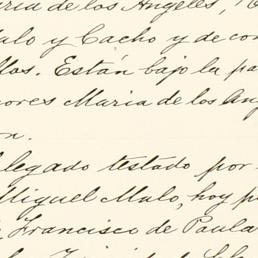 ria de los Angeles,
alo y Cacho y de con
llos. Están bajo la pa
nores Maria de los Ang
on.
legado testado por
Miguel Malo, hoy p
Francisco de Paula